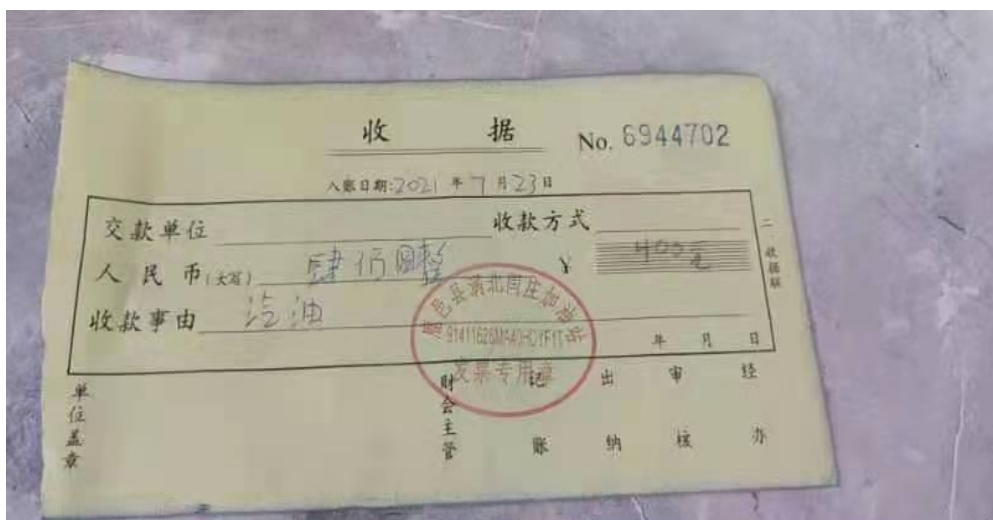 收 据 No. 6944702
入账日期:2021 年 7 月 23 日
交款单位 收款方式
人民币(大写) 肆佰圆整 ¥ 400元
收款事由 汽油
年 月 日
鹿邑县涡北闫庄加油站
发票专用章
二 收据联
单位盖章 财会主管 记账 出纳 审核 经办